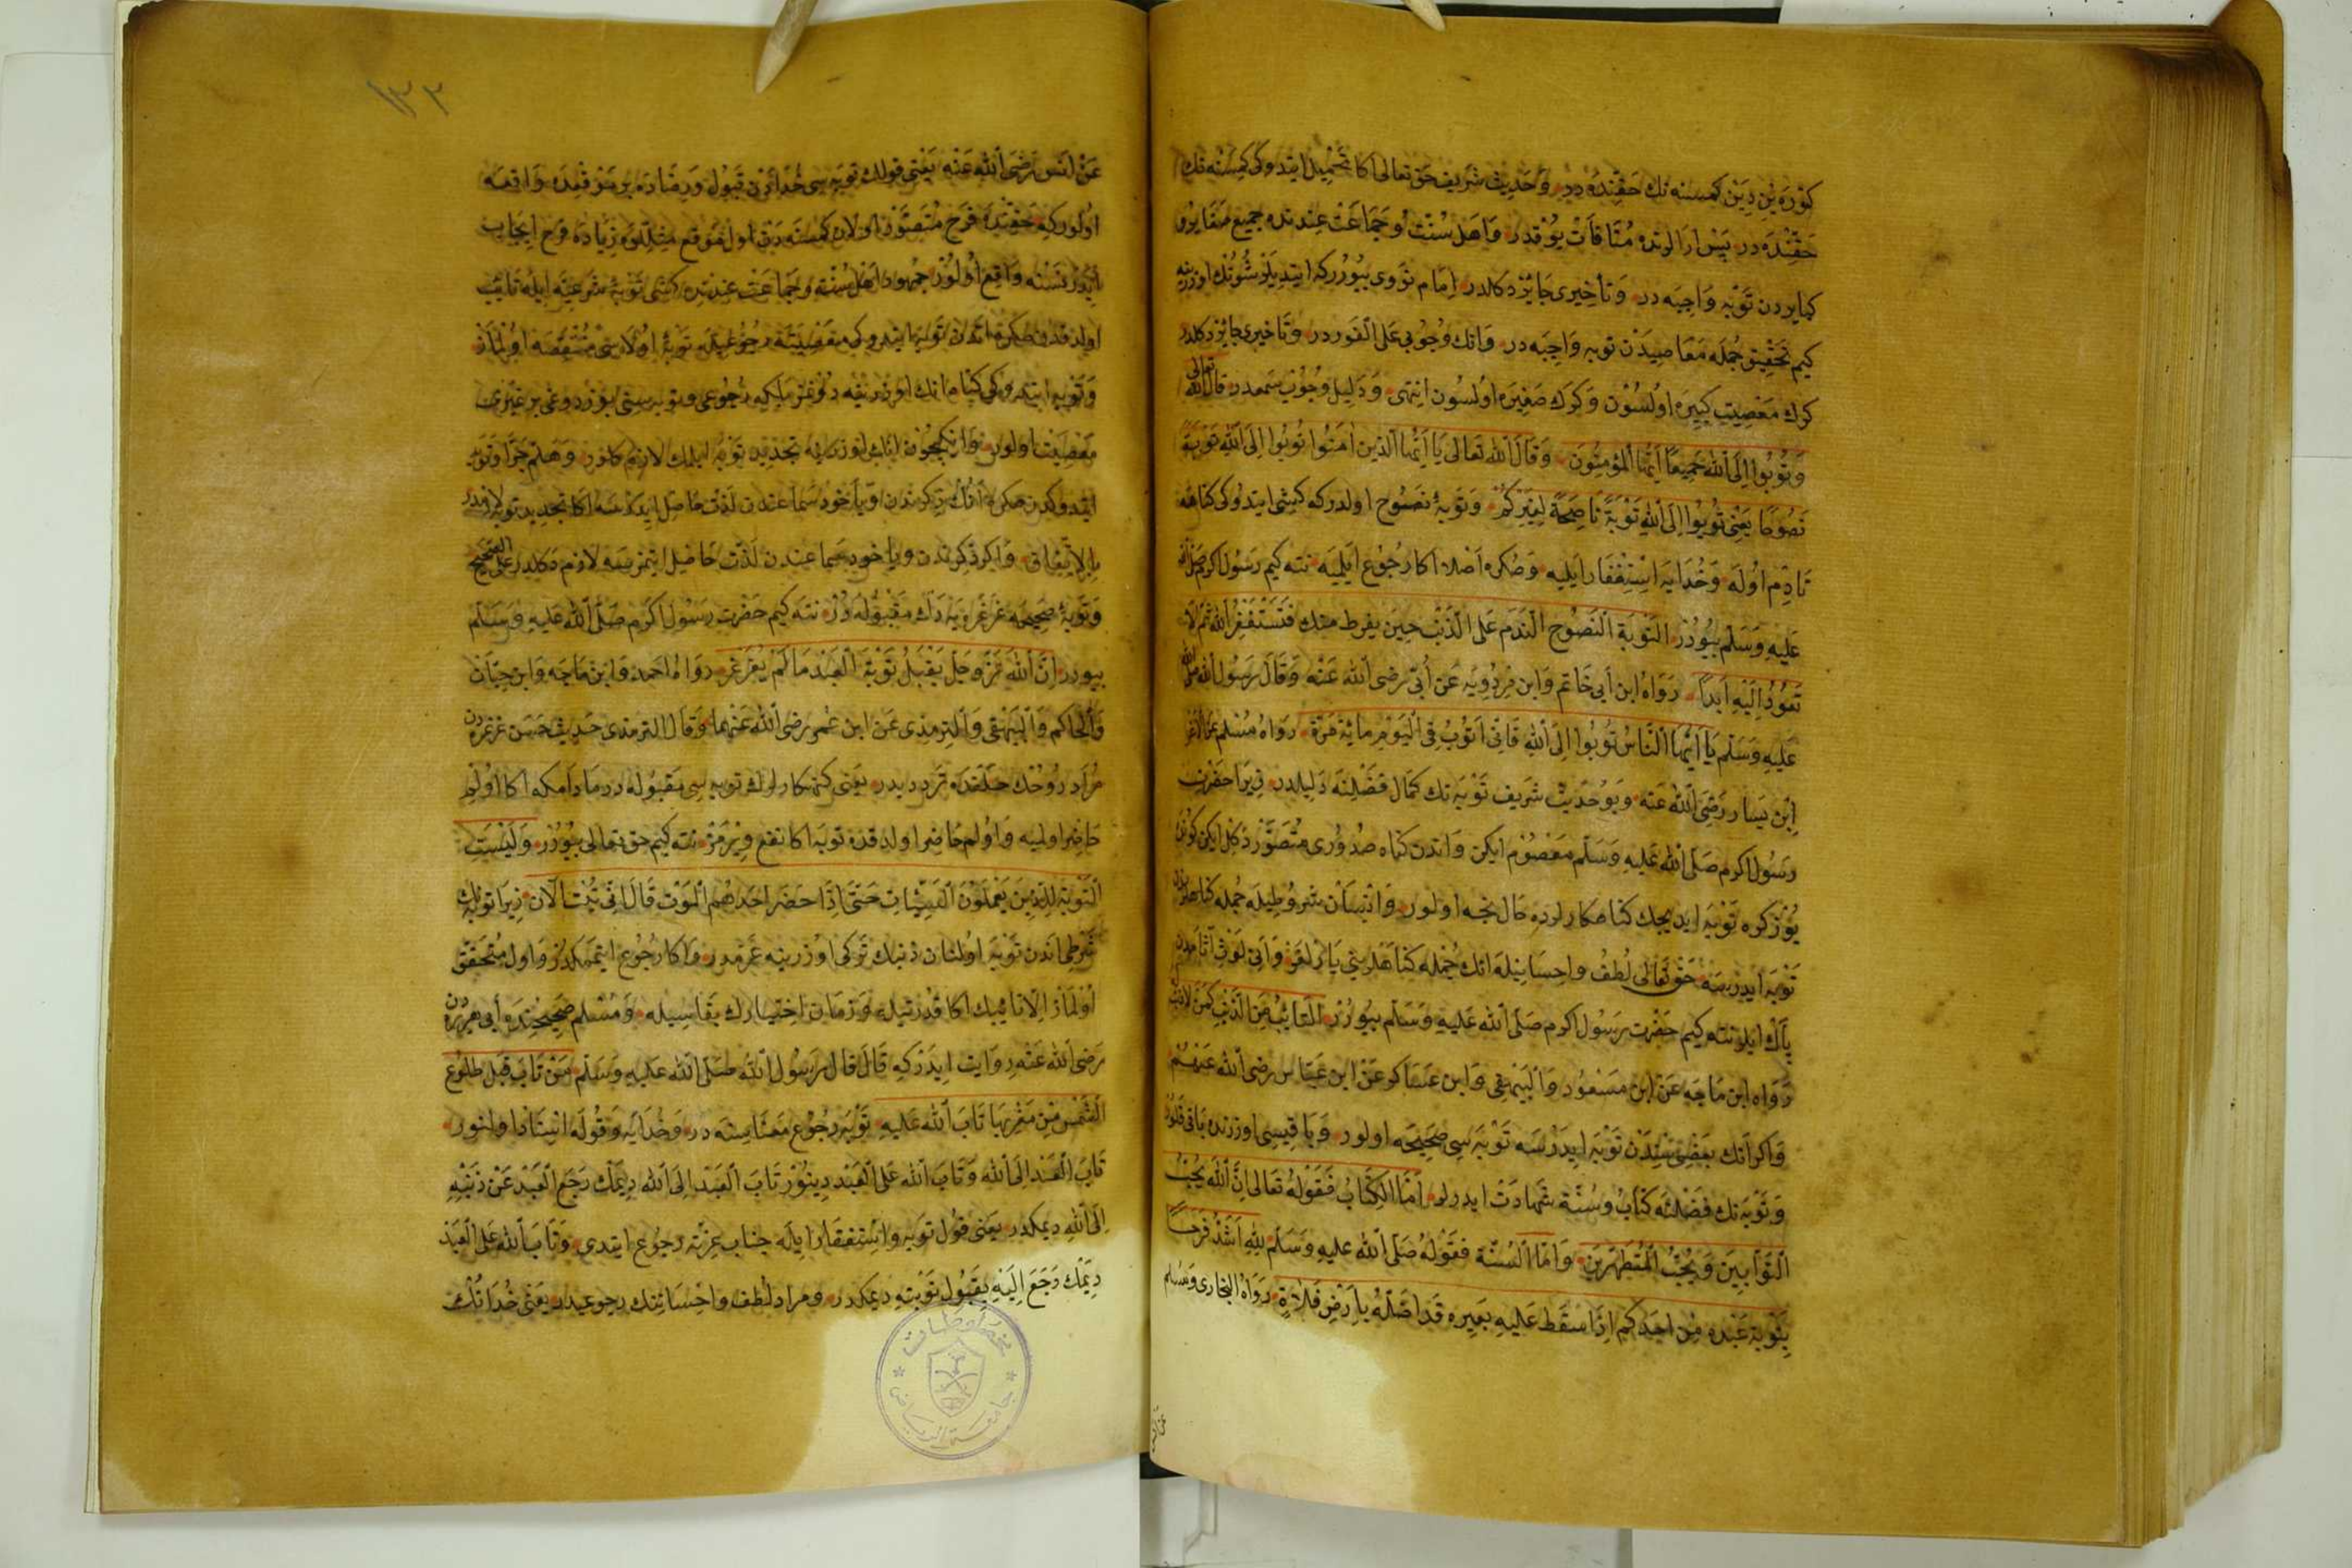 كوره يز دين كمسنه نك حقنده در وحديث شريف حق تعالى اكا تحميل ايتدوكى كمسنه نك
حقنده در پس ارالرنده منافات يوقدر واهل سنت وجماعت عندنده جميع صغاير
كبايردن توبه واجبه در وتأخيرى جائز دكلدر امام نووى بيوررك
كيم تحقيق جمله معاصيدن توبه واجبه در وانك وجوبى على الفور در وتاخيرى جائز دكلدر
كرك معصيت كبيره اولسون وكرك صغيره اولسون انتهى ودليل وجوب سمعدر قال الله تعالى
وتوبوا الى الله جميعا ايها المؤمنون وقال الله تعالى يا ايها الذين امنوا توبوا الى الله توبة
نصوحا يعنى توبوا الى الله توبة ناصحة لغيركم وتوبه نصوح اولدركه كشى ايتدوكى كناهه
نادم اوله وخدايه استغفار ايليه وصكره اصلا اكا رجوع ايلميه نته كيم رسول اكرم صلى الله
عليه وسلم بيورر التوبة النصوح الندم على الذنب حين يفرط منك فتستغفر الله ثم لا
تعود اليه ابدا رواه ابن ابى حاتم وابن مردويه عن ابى رضى الله عنه وقال رسول الله صلى الله
عليه وسلم يا ايها الناس توبوا الى الله فانى اتوب فى اليوم مائة مرة رواه مسلم عن الاغر
ابن يسار رضى الله عنه وبو حديث شريف توبه نك كمال فضلنه دليلدر زيرا حضرت
رسول اكرم صلى الله عليه وسلم معصوم ايكن واندن كناه صدورى متصور دكل ايكن كونده
يوز كره توبه ايديجك كناهكارلرده حال نجه اولور وانسان شروطيله جمله كناهلردن
توبه ايدرسه حق تعالى لطف واحسانيله انك جمله كناهلرينى يارلغر وانى لوث آثامدن
پاك ايلر نته كيم حضرت رسول اكرم صلى الله عليه وسلم بيورر التائب من الذنب كمن لا ذنب له
رواه ابن ماجه عن ابن مسعود والبيهقى وابن عساكر عن ابن عباس رضى الله عنهم
واكر انك بعضيسندن توبه ايدرسه توبه سى صحيحه اولور وباقيسى اوزرنده باقى قلور
وتوبه نك فضلنه كتاب وسنة شهادت ايدرلر اما الكتاب فقوله تعالى ان الله يحب
التوابين ويحب المتطهرين واما السنة فقوله صلى الله عليه وسلم لله اشد فرحا
بتوبة عبده من احدكم اذا سقط عليه بعيره قد اضله بارض فلاة رواه البخارى ومسلم
١٣٢
عن انس رضى الله عنه يعنى قولك توبه سى خدانك قبول ورضاده بر موقعده واقعه
اولوركه حقنده فرح متصور اولان كمسنه دن اول موقع مثللوده زياده فرح ايجاب
ايدر نسنه واقع اولور جمهور اهل سنت وجماعت عندنده كشى توبه شرعيه ايله تائب
اولدقدنصكره اندن توبه ايتدوكى معصيته رجوعيله توبه اولاسى منتقضه اولماز
وتوبه ايتدوكى كناه انك اوزرينه
معصيت اولور وارتكابيچون انك اوزرينه تجديد توبه ايلمك لازم كلور وهلم جرا
ايتدوكدنصكره انك ذكرندن ويا خود سماعندن لذت حاصل ايدرسه اكا تجديد توبه لازمدر
بالاتفاق واكر ذكرندن ويا خود سماعندن لذت حاصل ايتمزسه لازم دكلدر على الصحيح
وتوبه صحيحه غرغره يه دك مقبوله در نته كيم حضرت رسول اكرم صلى الله عليه وسلم
بيورر ان الله عز وجل يقبل توبة العبد ما لم يغرغر رواه احمد وابن ماجه وابن حبان
والحاكم والبيهقى والترمذى عن ابن عمر رضى الله عنهما وقال الترمذى حديث حسن غرغره دن
مراد روحك حلقده ترددىدر يعنى كنهكارلرك توبه سى مقبوله در مادامكه اكا اولم
حاضر اولميه واولم حاضر اولدقده توبه اكا نفع ويرمز نته كيم حق تعالى بيورر وليست
التوبة للذين يعملون السيئات حتى اذا حضر احدهم الموت قال انى تبت الآن زيرا توبه نك
شرطى اندن توبه اولنان ذنبك تركى اوزرينه عزمدر واكا رجوع ايتممكدر واول متحقق
اولماز الا تائبك اكا قدرتيله وزمان اختيارك بقاسيله ومسلم صحيحنده ابى هريره دن
رضى الله عنه روايت ايدركه قال قال رسول الله صلى الله عليه وسلم من تاب قبل طلوع
الشمس من مغربها تاب الله عليه توبه رجوع معناسنه در وخدايه وقوله اسناد اولنور
تاب العبد الى الله وتاب الله على العبد دينور تاب العبد الى الله ديمك رجع العبد عن ذنبه
الى الله ديمكدر يعنى قول توبه واستغفار ايله جناب عزته رجوع ايتدى وتاب الله على العبد
ديمك رجع اليه بقبول توبته ديمكدر ومراد لطف واحساننك رجوعيدر يعنى خدانك
جامعة الرياض